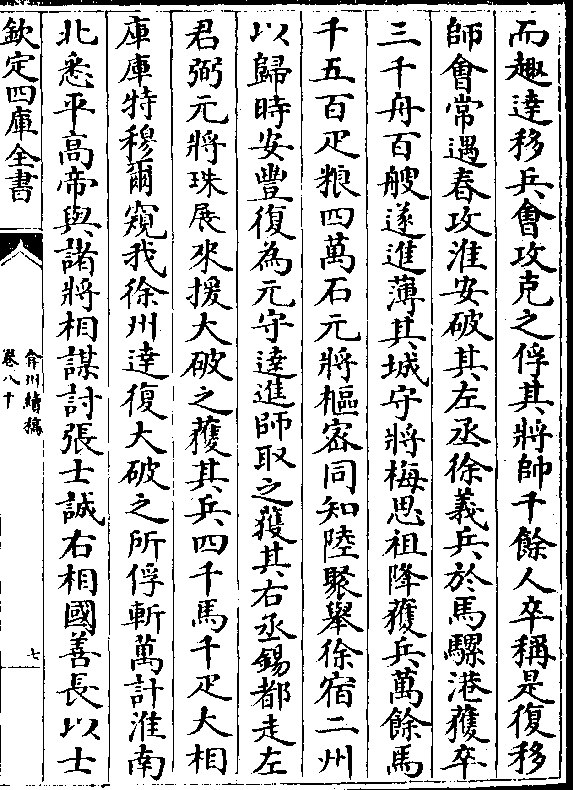 而趣達移兵會攻克之俘其將帥千餘人卒稱是復移
師會常遇春攻淮安破其左丞徐義兵於馬騾港獲卒
三千舟百艘遂進薄其城守將梅思祖降獲兵萬餘馬
千五百疋粮四萬石元將樞密同知陸聚舉徐宿二州
以歸時安豐復為元守達進師取之獲其右丞錫都走左
君弼元將珠展來援大破之獲其兵四千馬千疋大相
庫庫特穆爾窺我徐州達復大破之所俘斬萬計淮南
北悉平高帝與諸將相謀討張士誠右相國善長以士
欽定四庫全書
弇州續稿
卷八十
七